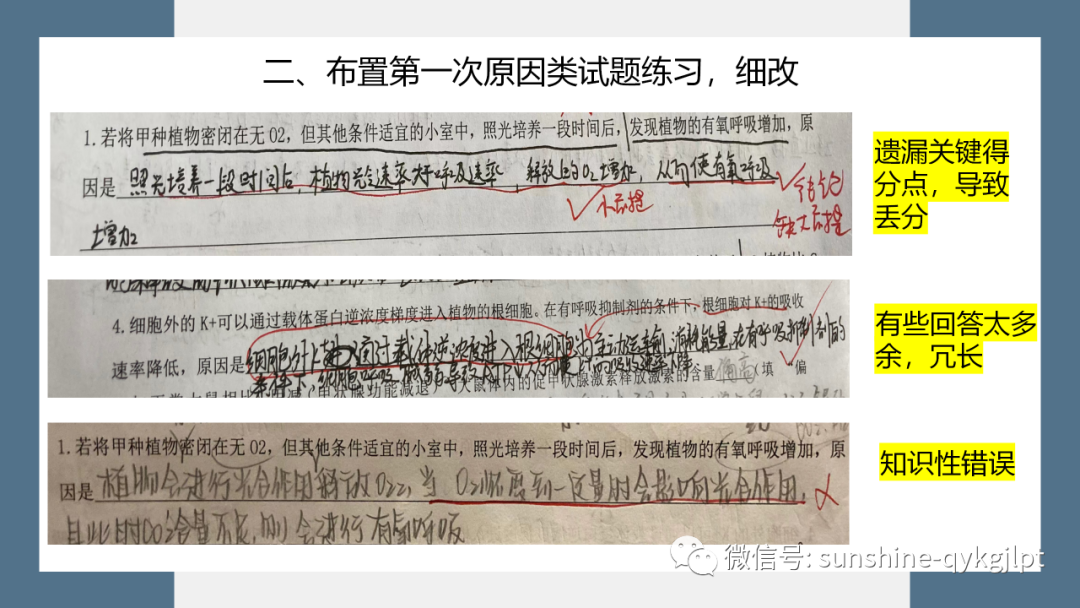 二、布置第一次原因类试题练习，细改
1.若将甲种植物密闭在无O2，但其他条件适宜的小室中，照光培养一段时间后，发现植物的有氧呼吸增加，原
因是 照光培养一段时间后，植物光合速率大于呼吸速率，释放的O2增加，从而使有氧呼吸
增加
缺大前提
遗漏关键得
分点，导致
丢分
4.细胞外的K+可以通过载体蛋白逆浓度梯度进入植物的根细胞。在有呼吸抑制剂的条件下，根细胞对K+的吸收
速率降低，原因是 细胞外 通过载体逆浓度进入根细胞 主动运输，消耗能量，在有呼吸抑制剂的
条件下，细胞呼吸
体内的促甲状腺激素释放激素的含量 偏高 （填“偏
有些回答太多
余，冗长
1.若将甲种植物密闭在无O2，但其他条件适宜的小室中，照光培养一段时间后，发现植物的有氧呼吸增加，原
因是 植物会进行光合作用释放O2，当O2浓度到一定量时会影响光合作用，
且此时CO2含量不足，则会进行有氧呼吸
知识性错误
微信号: sunshine-qykgjlpt